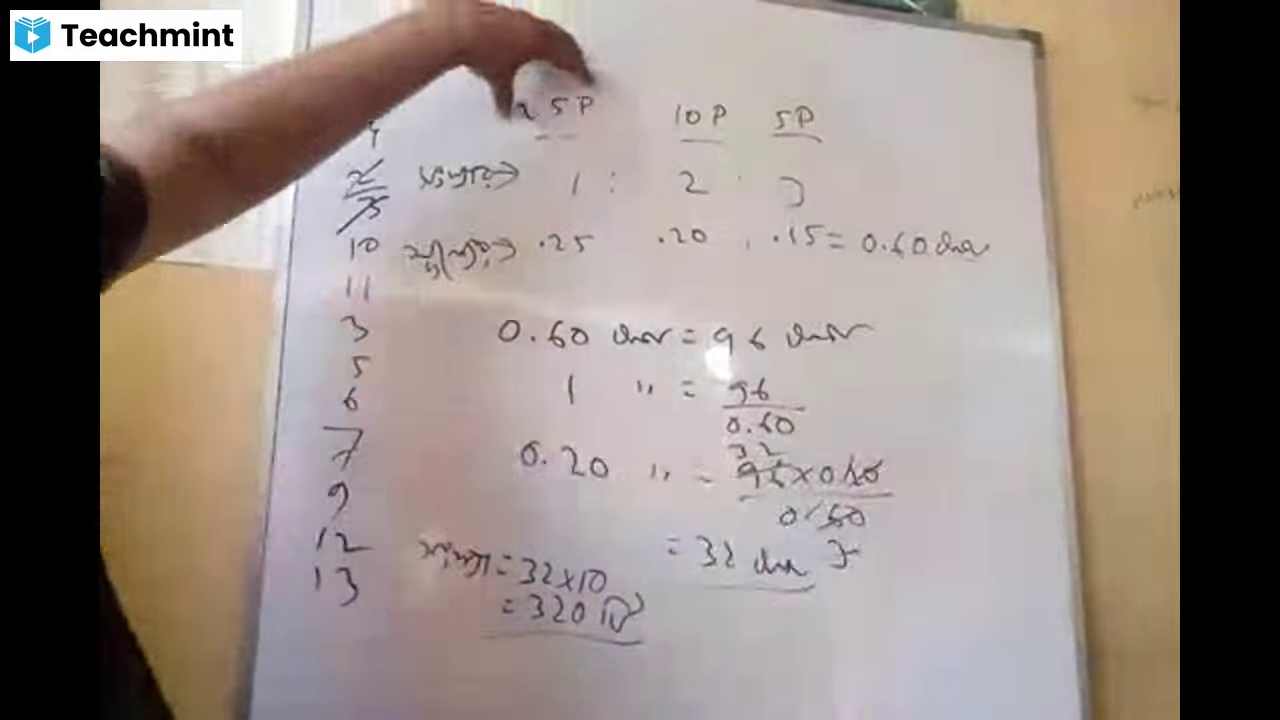 Teachmint
25P 10P 5P
1 : 2 : 3
.25 .20 .15 = 0.60 টাকা
0.60 টাকা = 96 টাকা
1 " = 96
0.60
0.20 " = 96 x 0.20
32
0.60
= 32 টাকা
= 32x10
= 320 টি
4
2
15
10
11
3
5
6
7
9
12
13